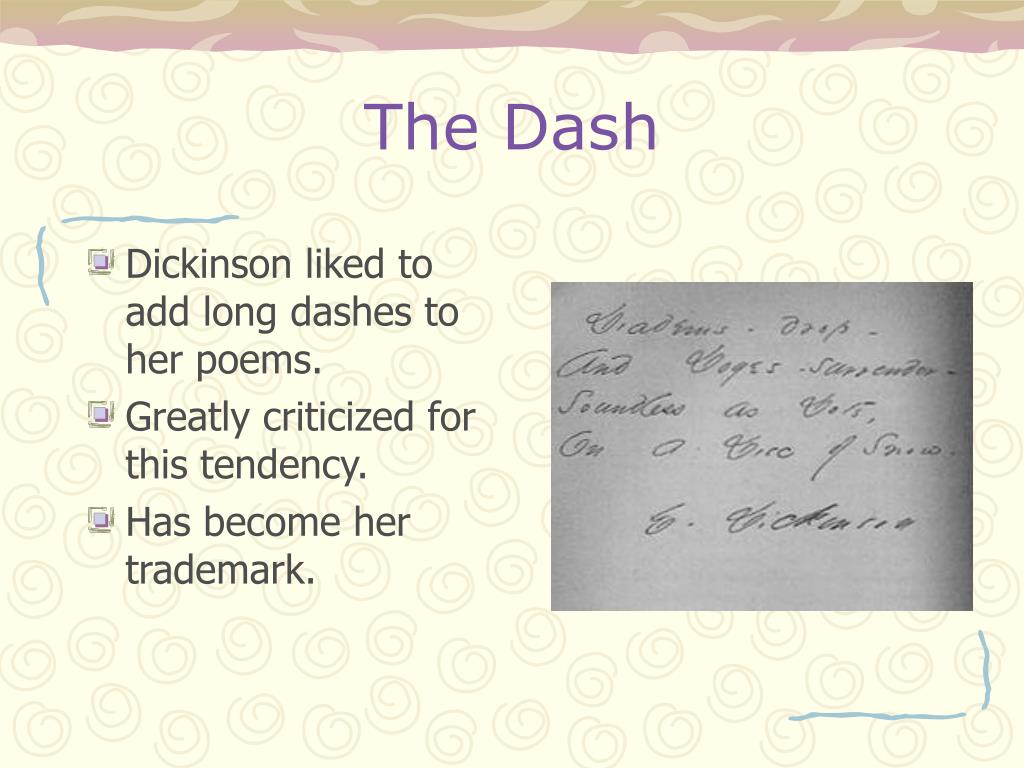 The Dash
Dickinson liked to
add long dashes to
her poems.
Greatly criticized for
this tendency.
Has become her
trademark.
Diadems - drop -
And Doges - surrender -
Soundless as Dots,
On a Disc of Snow.
E. Dickinson